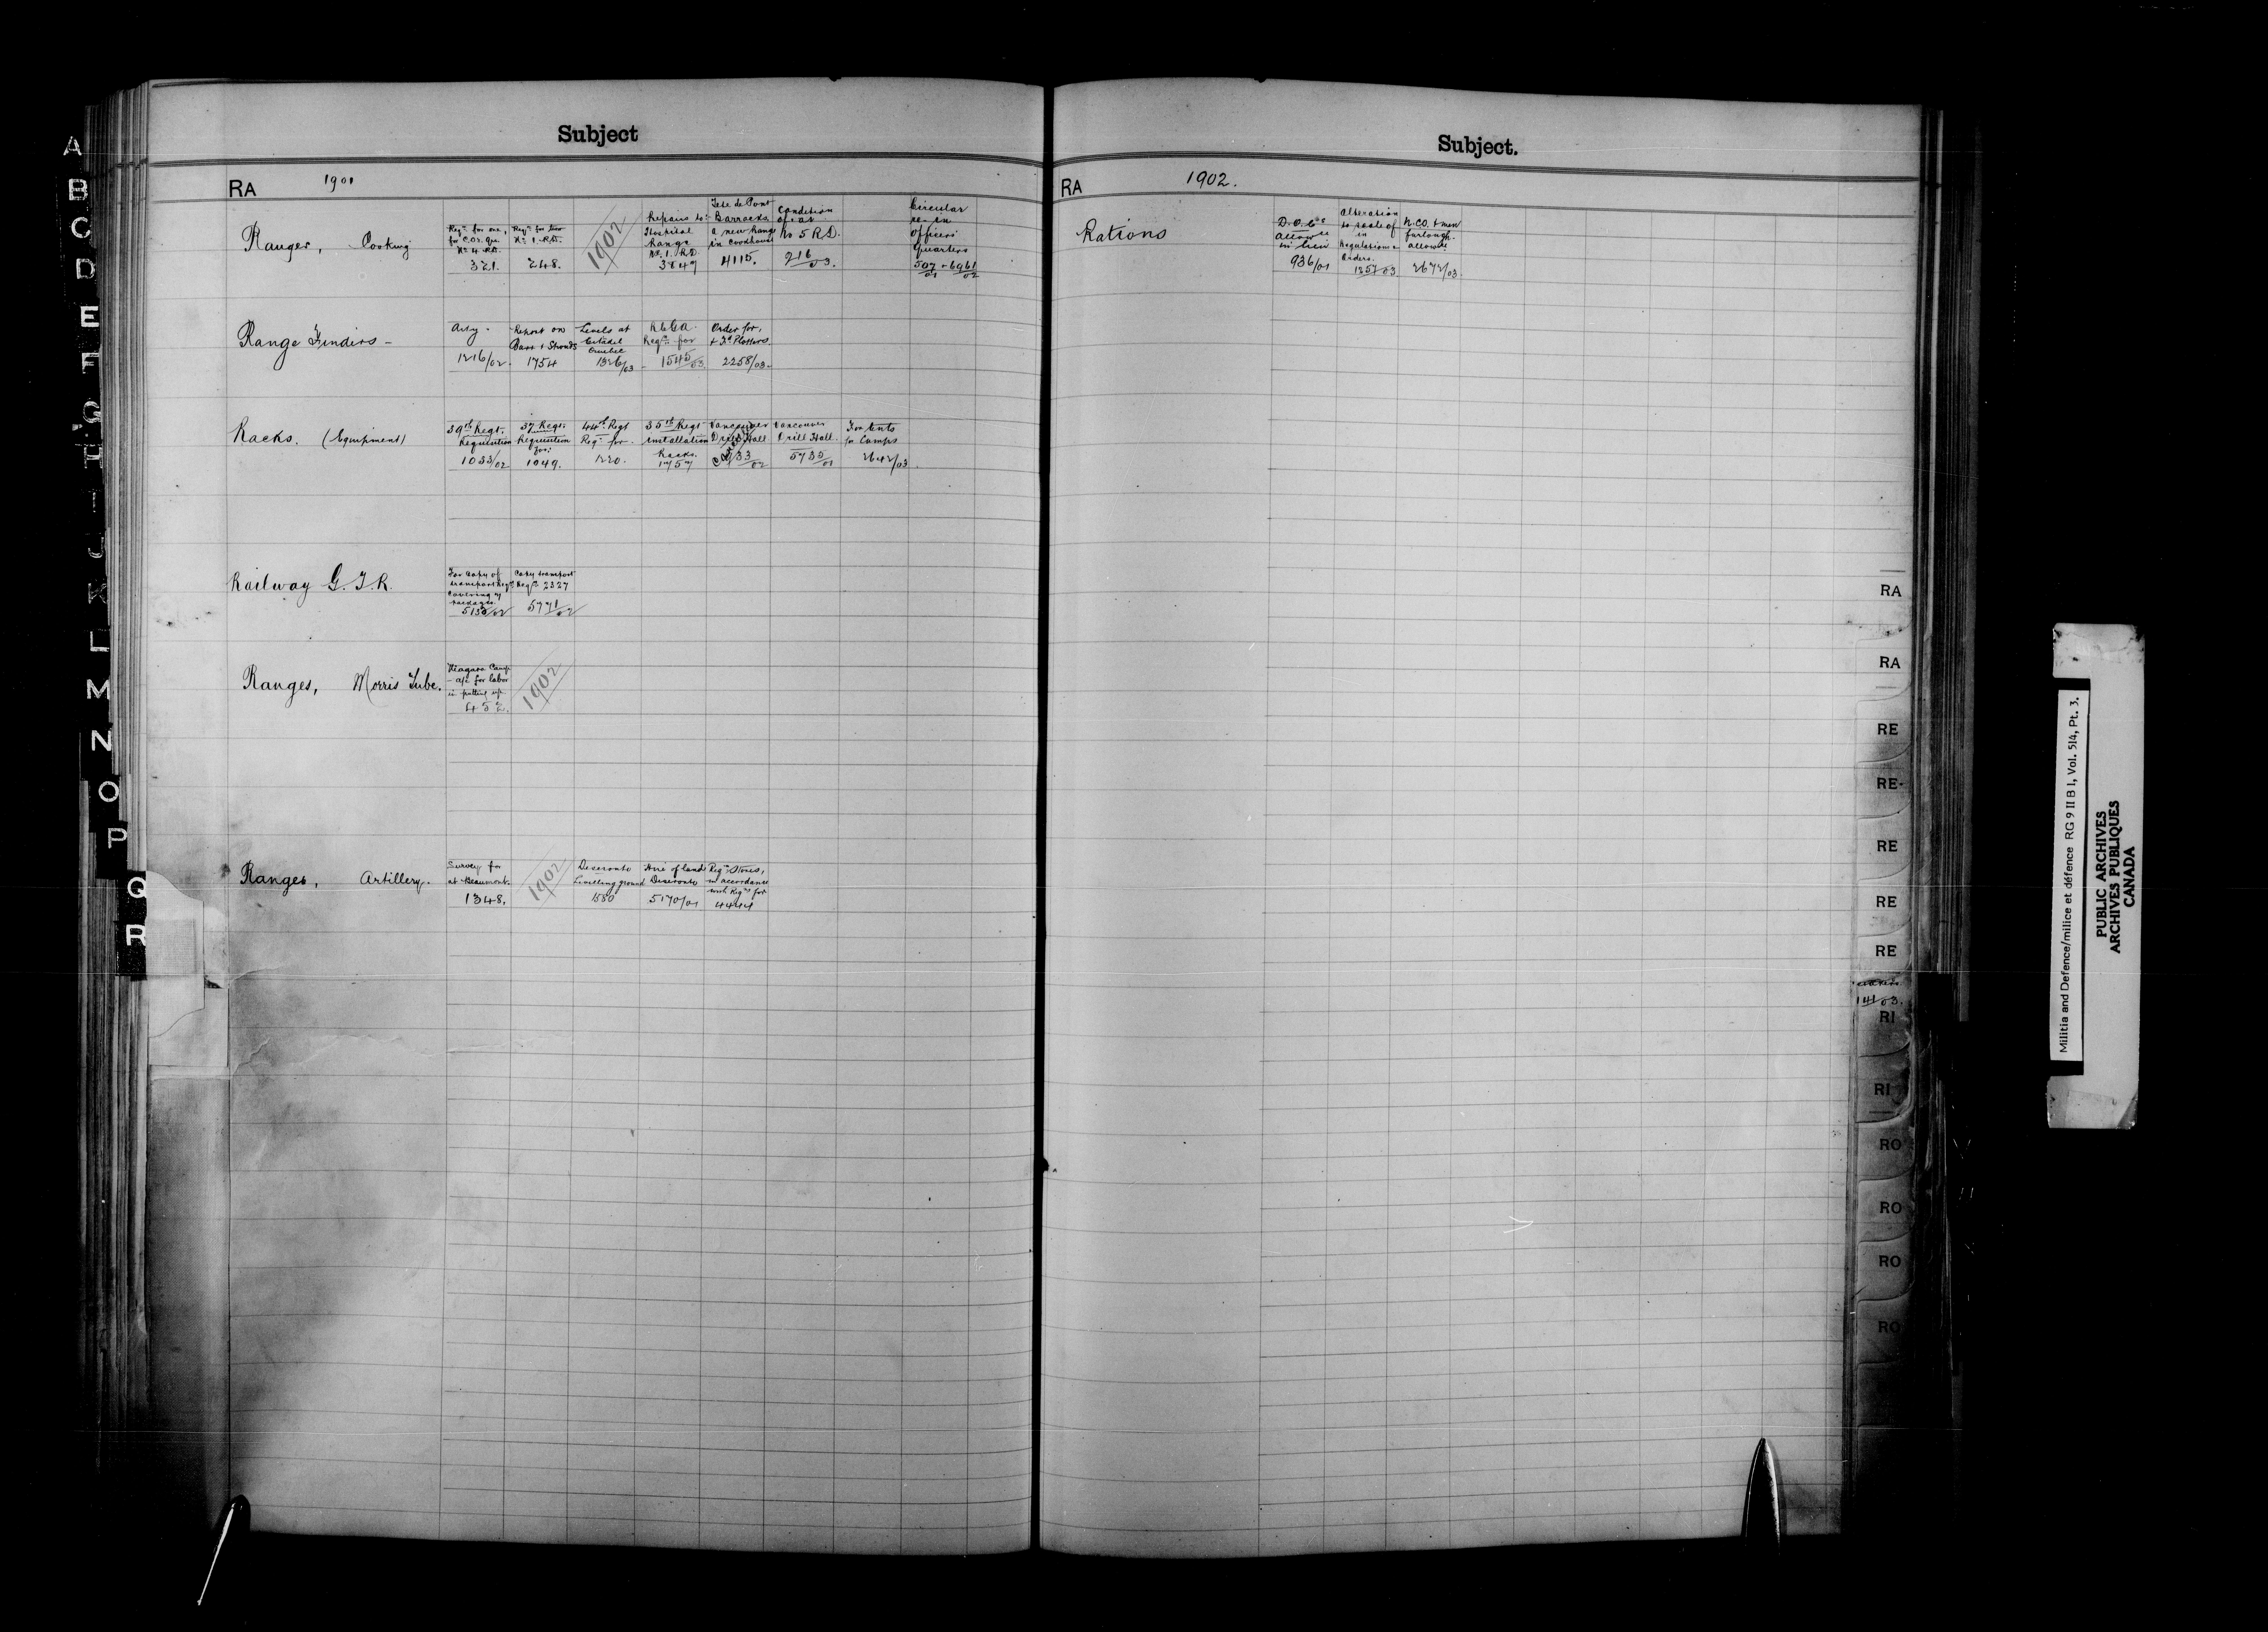 Subject
RA 1901
Ranges, Cooking
Reqn for one, for C.O's Qrs No 4 R.D. 321.
Reqn for two No 1 R.D. 248.
1902
Repairs to Hospital Range No 1. R.D. 3847
Tete de Pont Barracks, a new Range in Cookhouse 4115.
Condition of, at No 5 R.D. 216/03.
Circular re in Officers' Quarters 507/01 - 6961/02
Range Finders -
Arty. 1216/02.
Report on Barr & Strouds 1754
Levels at Citadel Quebec 1326/03
R.C.G.A. Reqn for 1545/03.
Order for, & Fd Plotters 2258/03.
Racks. (Equipment)
39th Regt. Requisition 1033/02
37 Regt. Requisition for: 1049.
44th Regt Reqn for. 1220.
35th Regt installation Racks. 1757
Vancouver Drill Hall 5733/02
Vancouver Drill Hall. 5735/01
For tents for Camps 2642/03.
Railway G.T.R.
For Copy of transport Reqn covering 7 packages 5133/02
Copy transport Reqn 2327 5771/02
Ranges, Morris Tube.
Niagara Camp - a/c for labor in putting up. 452.
1902
Ranges, Artillery.
Survey for at Beaumont. 1348.
1902
Deseronto Levelling ground 1580
Hire of land Deseronto 5170/01
Reqn Stores, in accordance with Reqns for 4444
Subject.
RA 1902.
Rations
D.O.C's allowce in lieu 936/01
Alteration to scale of in Regulations & Orders. 1257/03
N.C.O. & men furlough. allowce 2672/03.
RA
RA
RE
RE
RE
RE
RE
141/03.
RI
RI
RO
RO
RO
RO
A
B
C
D
E
F
G
H
I
J
K
L
M
N
O
P
Q
R
Militia and Defence/milice et défence RG 9 II B 1, Vol. 514, Pt. 3.
PUBLIC ARCHIVES
ARCHIVES PUBLIQUES
CANADA